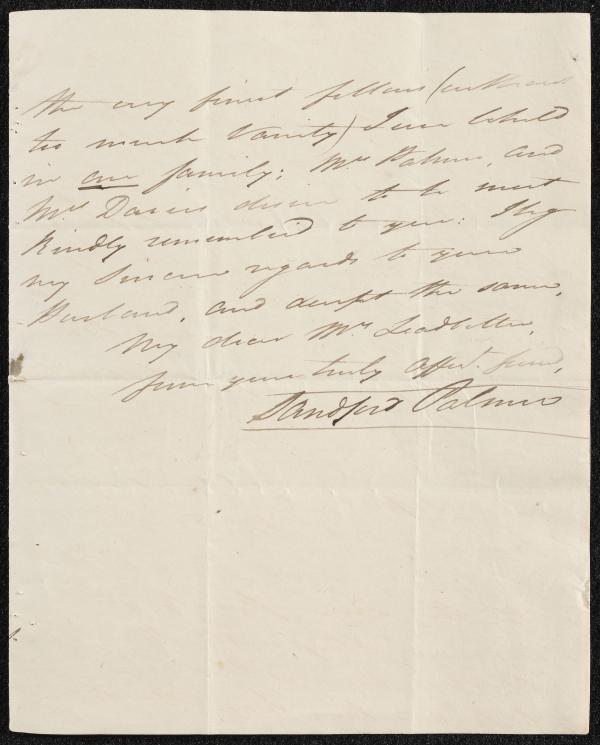 the very finest fellows (without
too much Vanity) I ever beheld
in our family; Mrs Palmer, and
Mrs Davis desire to be most
kindly remembered to you: I beg
my Sincere regards to your
Husband, and accept the same,
My dear Mrs Leadbetter,
from your truly affect. friend,
Sandford Palmer